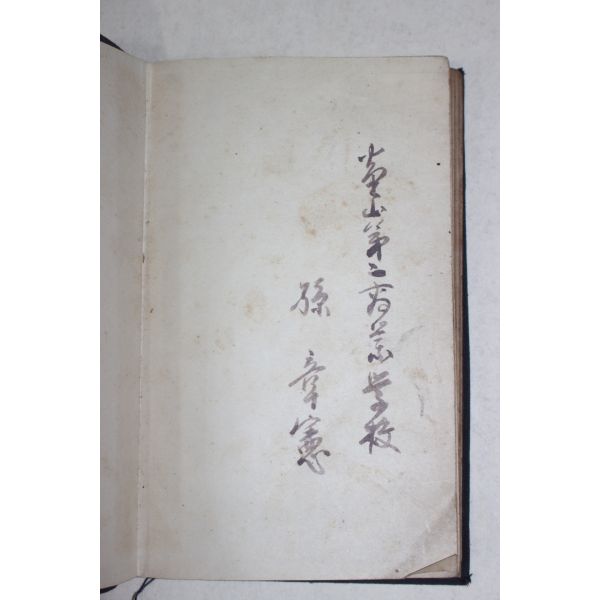 釜山第二商業学校
孫章憲